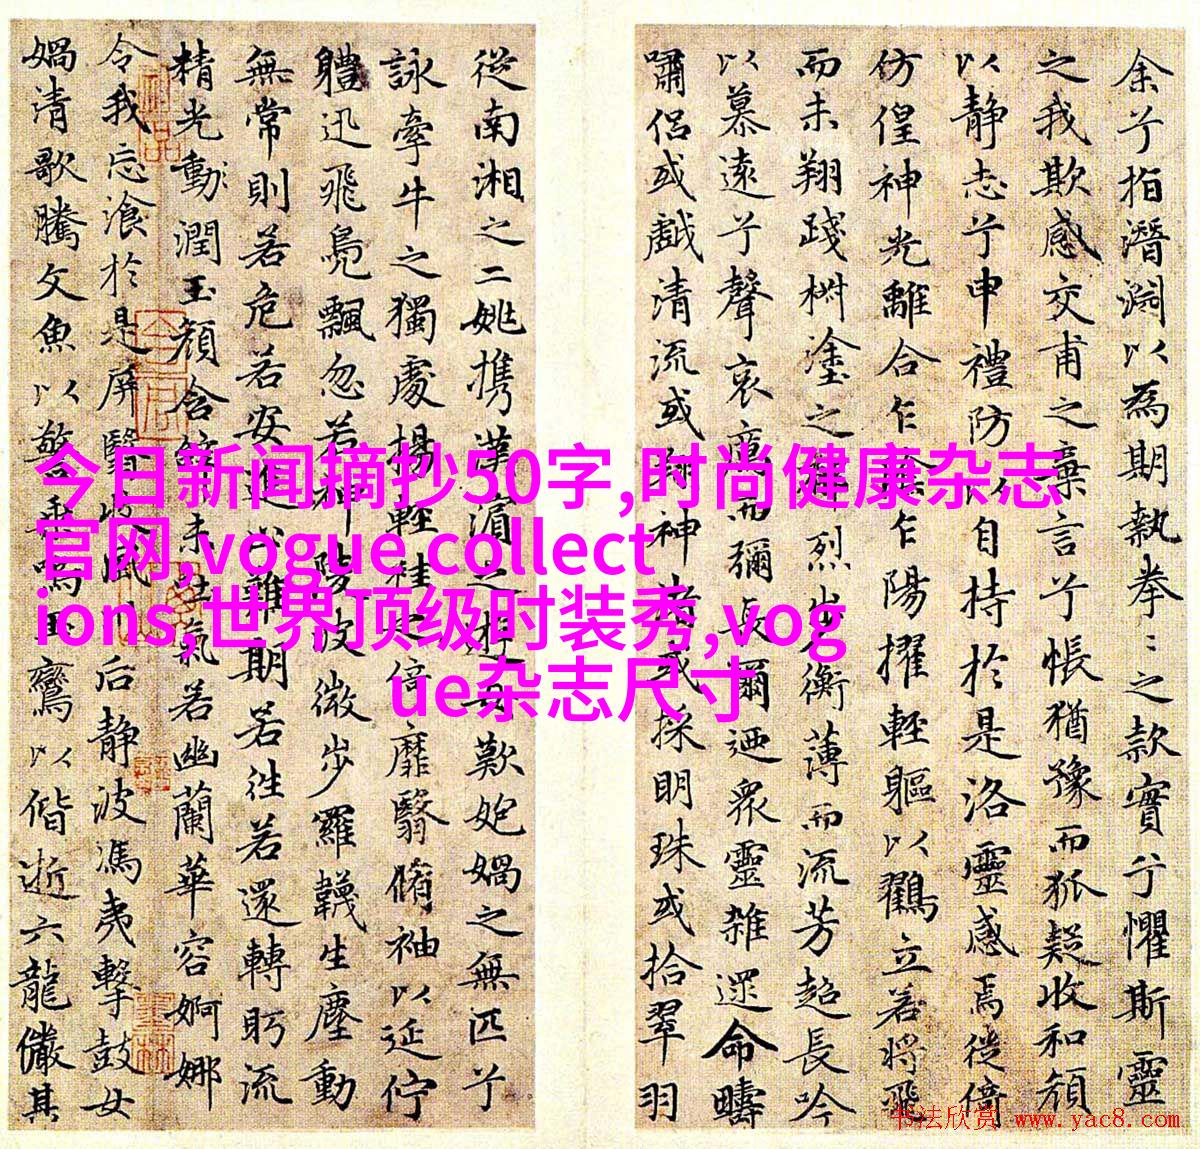 余兮指潛淵以為期執拳〻之款實兮懼斯靈
之我欺感交甫之棄言兮悵猶豫而狐疑收和顔
以靜志兮申禮防以自持於是洛靈感焉徙倚
仿偟神光離合乍陰乍陽擢輕軀以鶴立若將飛
而未翔踐椒塗之郁烈步衡薄而流芳超長吟
以慕遠兮聲哀厲而彌長爾迺衆靈雜遝命疇
嘯侶或戲清流或翔神渚或採明珠或拾翠羽
從南湘之二姚攜漢濱之游女歎匏媧之無匹兮
詠牽牛之獨處揚輕袿之倚靡翳脩袖以延佇
體迅飛鳧飄忽若神陵波微步羅韈生塵動
無常則若危若安進止難期若往若還轉眄流
精光動潤玉顔含辭未吐氣若幽蘭華容婀娜
令我忘飡於是屏翳收風川后靜波馮夷擊鼓女
媧清歌騰文魚以警乘鳴玉鸞以偕逝六龍儼其
今日新闻摘抄50字,时尚健康杂志
官网,vogue collect
ions,世界顶级时装秀,vog
ue杂志尺寸
书法欣赏 www.yac8.com